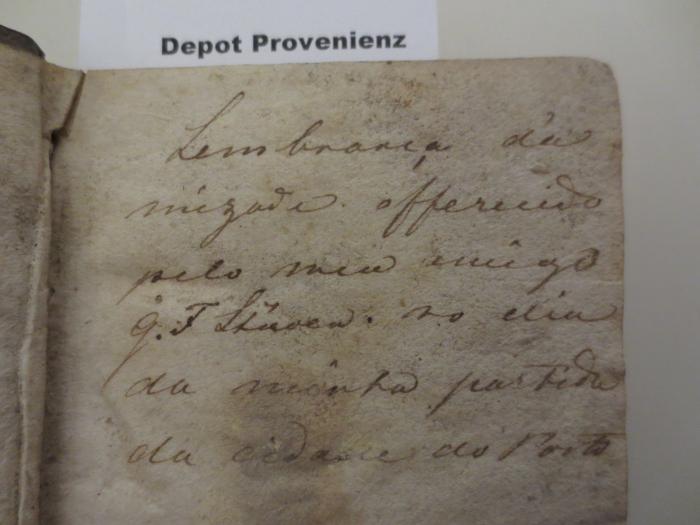 Depot Provenienz
Lembrança d'a
mizade offerecido
pelo meu amigo
G. F. Stüven. no dia
da minha partida
da cidade do Porto